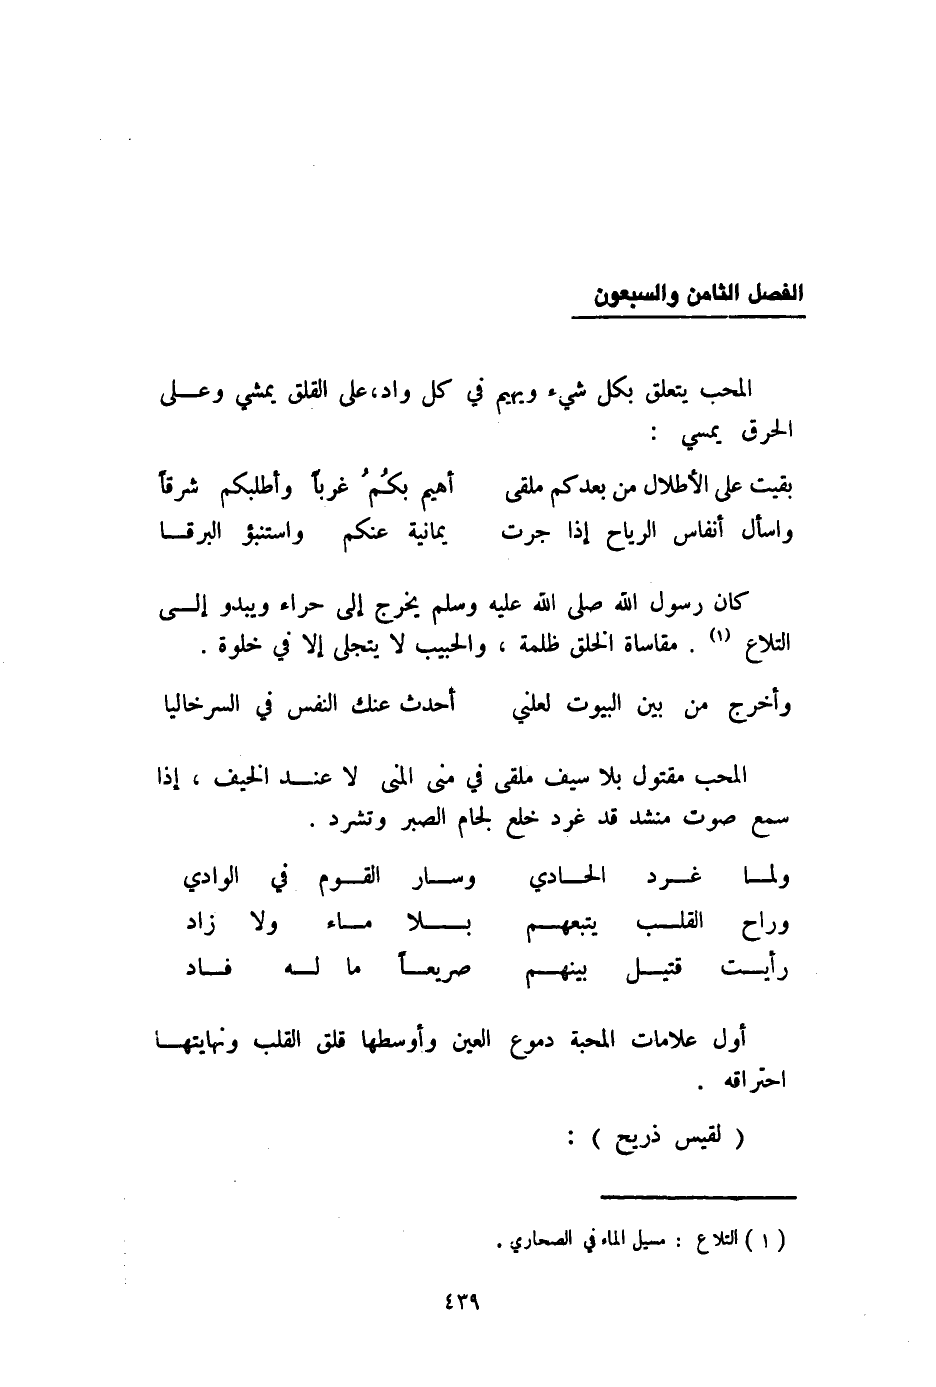 الفصل الثامن والسبعون
المحب يتعلق بكل شيء ويهيم في كل واد، على القلق يمشي وعلى
الحرق يمسي :
بقيت على الأطلال من بعدكم ملقى أهيم بكُمُ غرباً وأطلبكم شرقاً
واسأل أنفاس الرياح إذا جرت يمانية عنكم واستنبؤ البرقا
كان رسول الله صلى الله عليه وسلم يخرج إلى حراء ويبدو إلى
التلاع (١) . مقاساة الخلق ظلمة ، والحبيب لا يتجلى إلا في خلوة .
وأخرج من بين البيوت لعلني أحدث عنك النفس في السر خاليا
المحب مقتول بلا سيف ملقى في منى المنى لا عند الخيف ، إذا
سمع صوت منشد قد غرد خلع لجام الصبر وتشرد .
ولما غرد الحادي وسار القوم في الوادي
وراح القلب يتبعهم بلا ماء ولا زاد
رأيت قتيل بينهم صريعاً ما له فاد
أول علامات المحبة دموع العين وأوسطها قلق القلب ونهايتها
احتراقه .
( لقيس ذريح ) :
( ١ ) التلاع : مسيل الماء في الصحاري .
٤٣٩